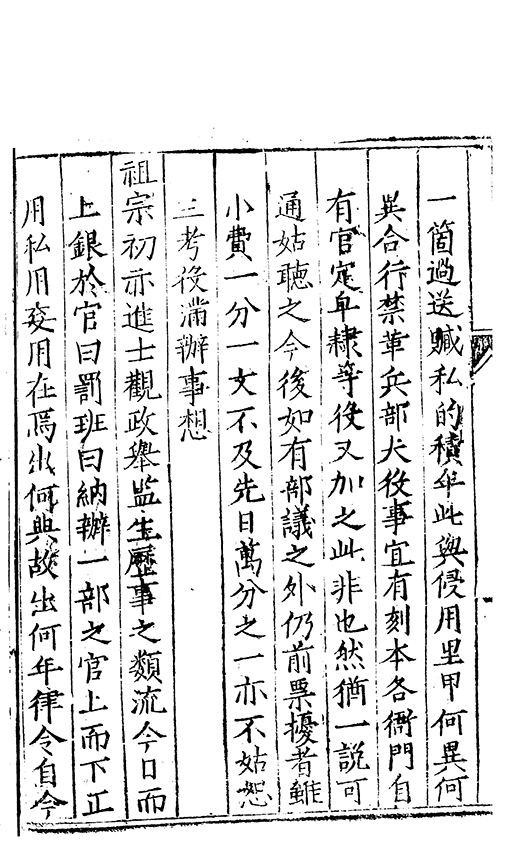 一箇過送贓私的積年此與侵用里甲何異何
異合行禁革兵部大役事宜有刻本各衙門自
有官定皁隸等役又加之此非也然猶一說可
通姑聽之今後如有部議之外仍前票擾者雖
小費一分一文不及先日萬分之一亦不姑恕
三考役滿辦事想
祖宗初亦進士觀政舉監生歷事之類流今日而
上銀於官曰罰班曰納辦一部之官上而下正
用私用妄用在焉出何興故出何年律令自今